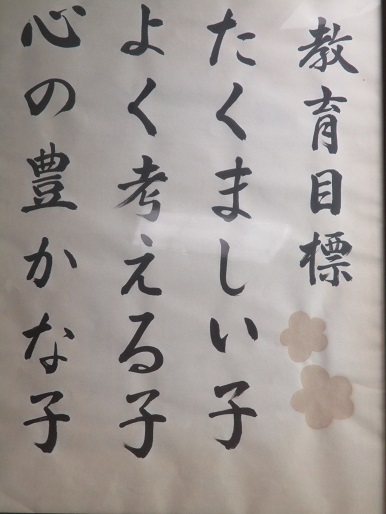 教育目標
たくましい子
よく考える子
心の豊かな子